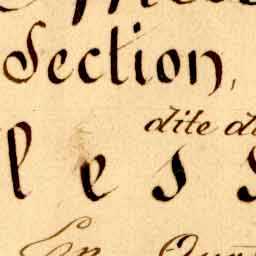 Section,
dite d
l e s s
En Qua